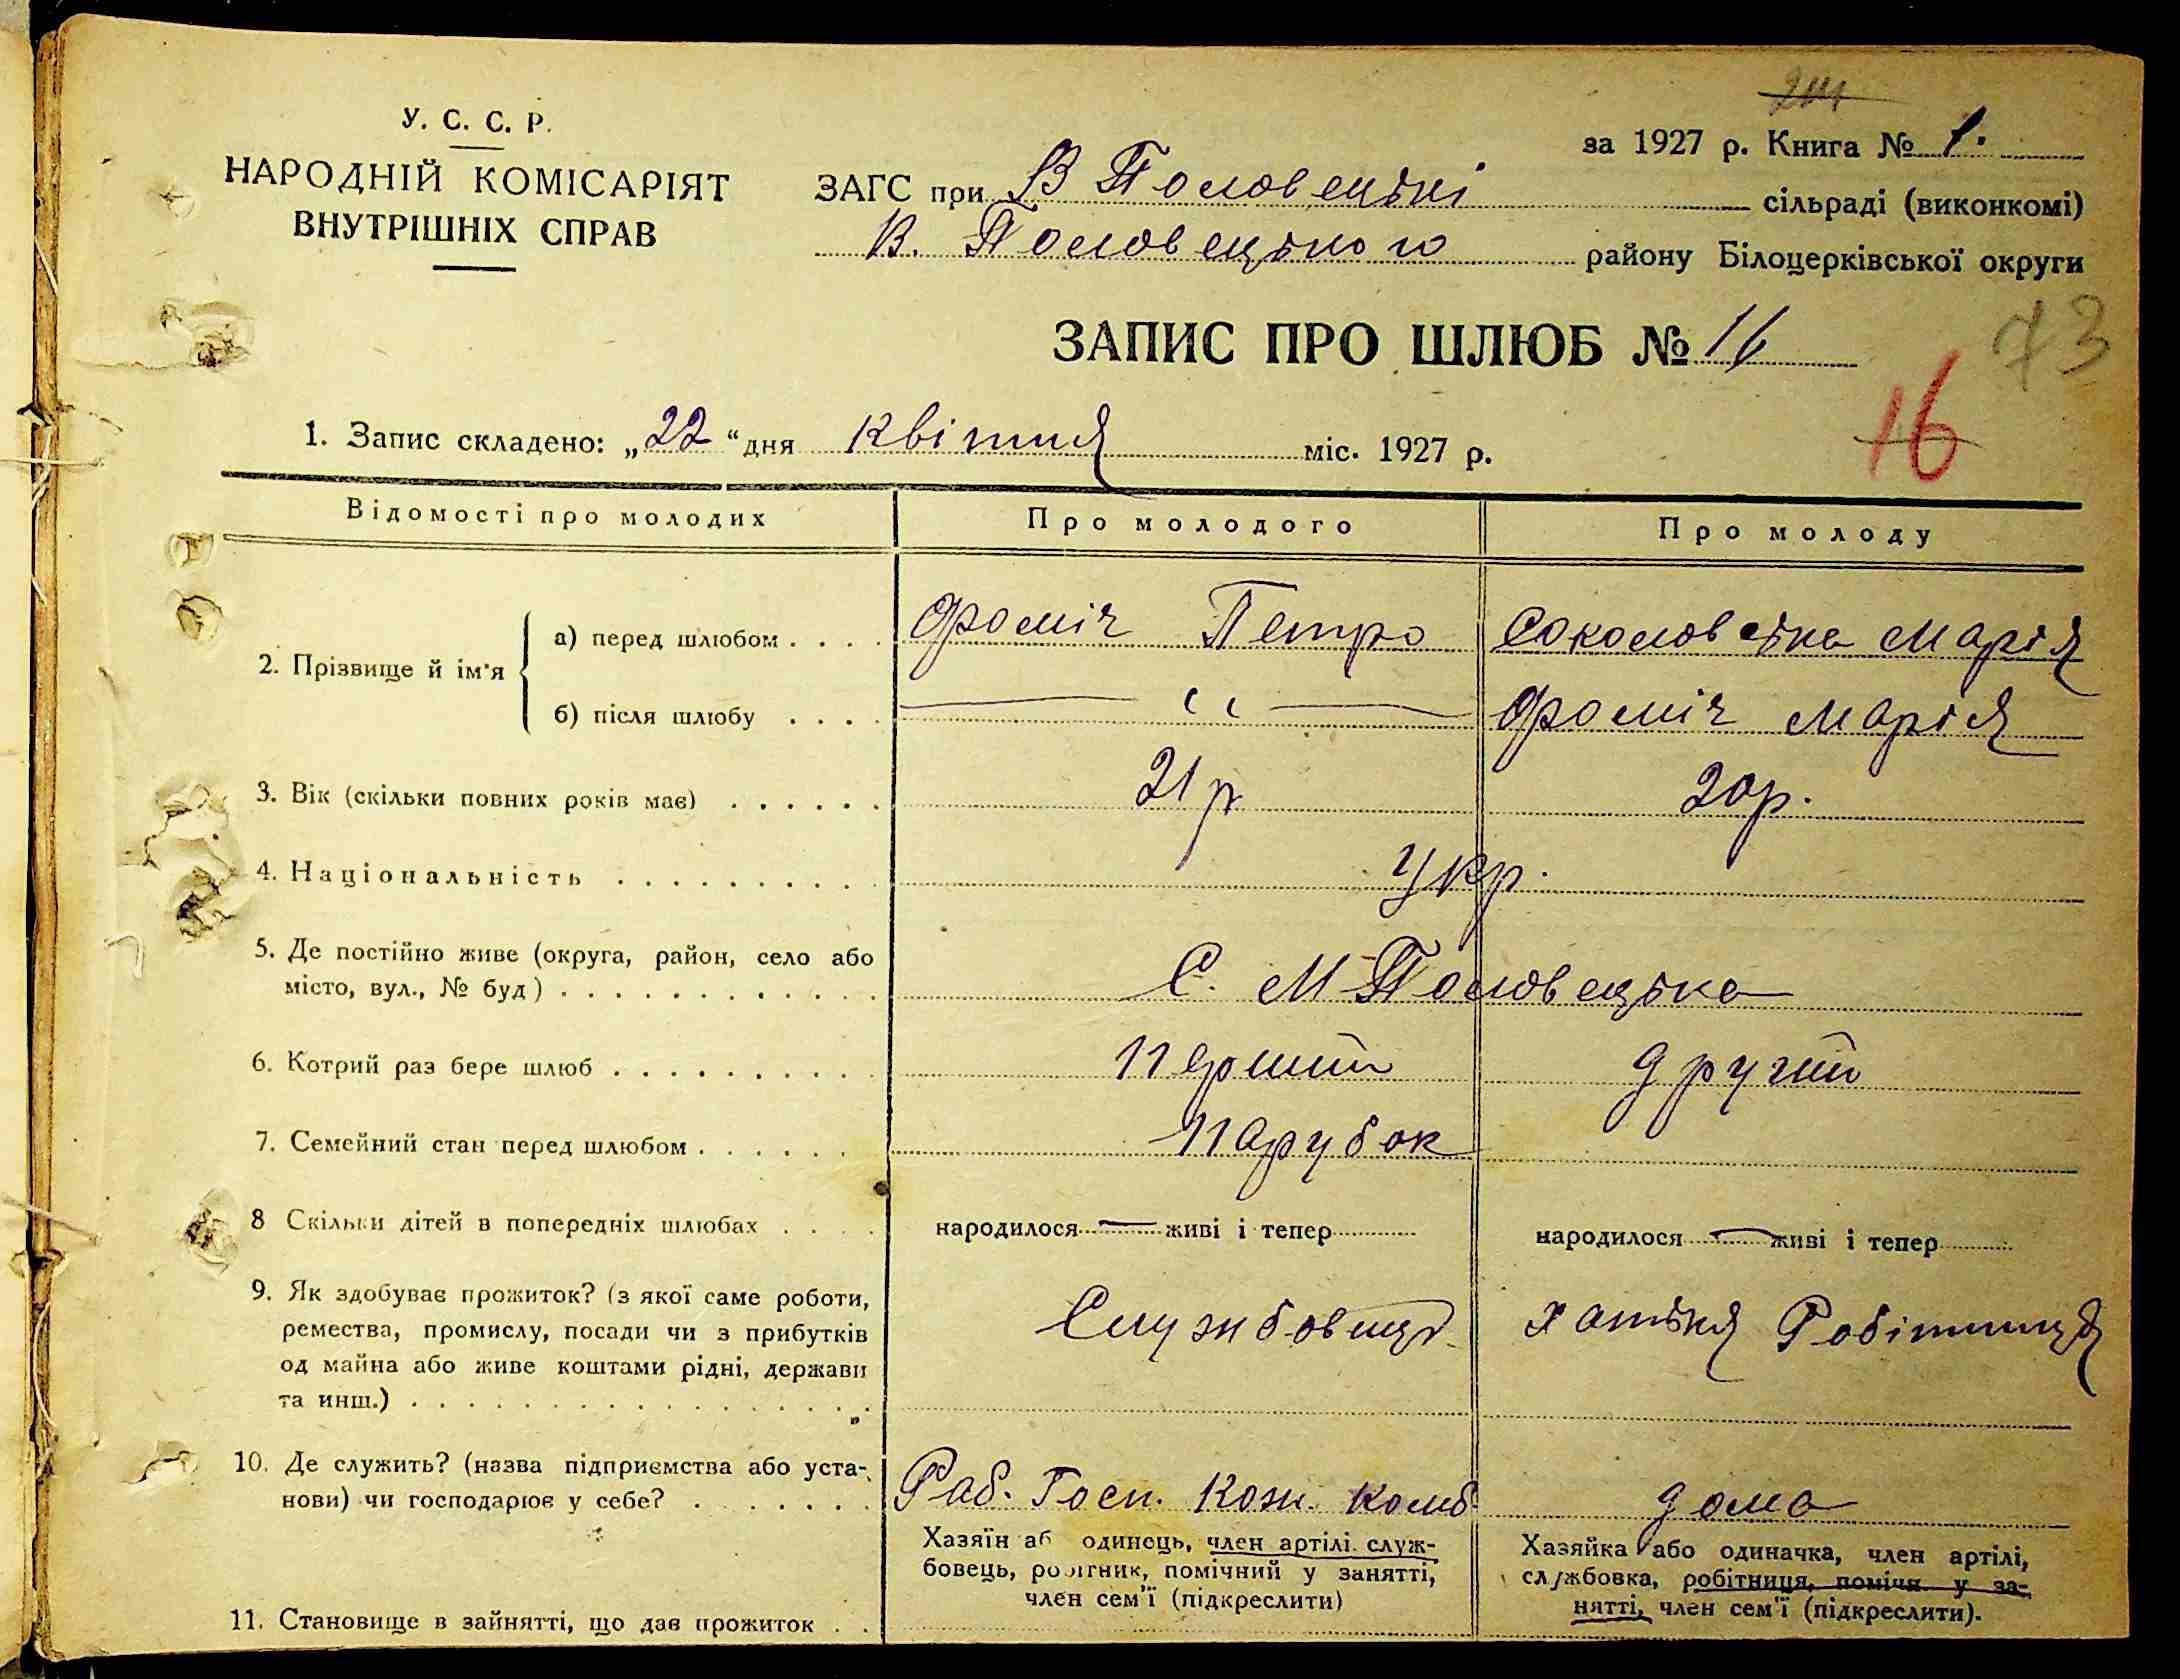 204
У. С. С. Р.
за 1927 р. Книга № 1.
НАРОДНІЙ КОМІСАРІЯТ
ВНУТРІШНІХ СПРАВ
ЗАГС при В Половецькі сільраді (виконкомі)
В. Половецького району Білоцерківської округи
ЗАПИС ПРО ШЛЮБ № 16
73
16
1. Запис складено: „22 “ дня Квітня міс. 1927 р.
Відомості про молодих Про молодого Про молоду
2. Прізвище й ім'я
а) перед шлюбом . . . . Фоміч Петро Соколовська Марія
б) після шлюбу . . . . — ‹‹ — Фоміч Марія
3. Вік (скільки повних років має) . . . . . . 21 р 20 р.
4. Національність . . . . . . . . . . Укр.
5. Де постійно живе (округа, район, село або
місто, вул., № буд) . . . . . . . . . . . . С. М-Половецька
6. Котрий раз бере шлюб . . . . . . . . . . перший другий
7. Семейний стан перед шлюбом . . . . . . парубок
8 Скільки дітей в попередніх шлюбах . . . . народилося — живі і тепер народилося — живі і тепер
9. Як здобуває прожиток? (з якої саме роботи,
ремества, промислу, посади чи з прибутків
од майна або живе коштами рідні, держави
та инш.) . . . . . . . . . . . . . . . . .
Службовець хатня Робітниця
10. Де служить? (назва підприємства або уста-
нови) чи господарює у себе? . . . . . . .
Раб. Госп. Кож. Комб. дома
Хазяїн аб одинець, член артілі. служ-
бовець, робітник, помічний у занятті,
член сем'ї (підкреслити)
Хазяйка або одиначка, член артілі,
службовка, робітниця, помічн. у за-
нятті, член сем'ї (підкреслити).
11. Становище в зайнятті, що дає прожиток . .